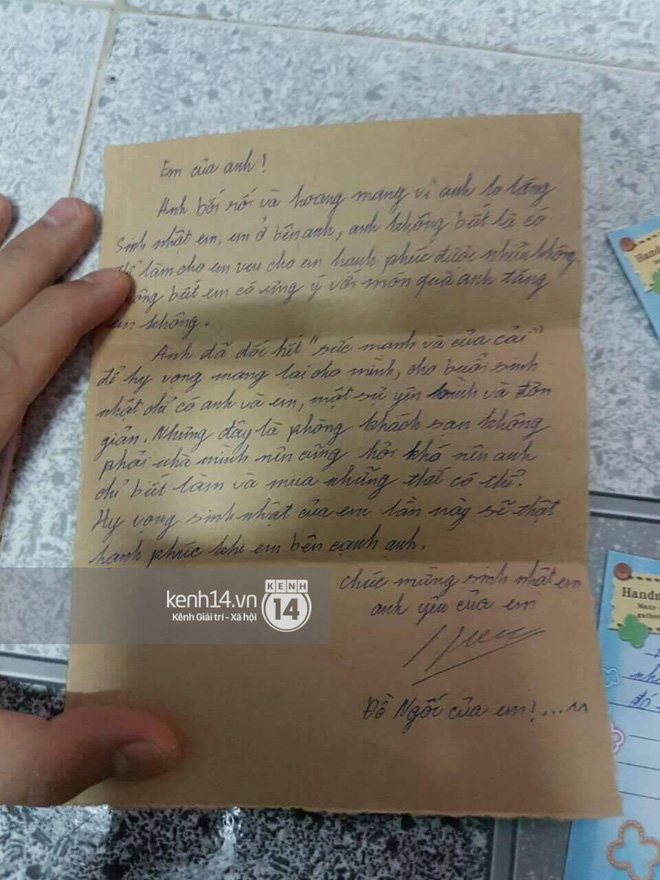 Em của anh!
Anh bối rối và hoang mang vì anh lo lắng
Sinh nhật em, em ở bên anh, anh không biết là có
thể làm cho em vui cho em hạnh phúc được nhiều không.
không biết em có ưng ý với món quà anh tặng
em không.
Anh đã dốc hết "sức mạnh và của cải"
để hy vọng mang lại cho mình, cho buổi sinh
nhật chỉ có anh và em, một sự yên bình và đơn
giản. Nhưng đây là phòng khách sạn không
phải nhà mình nên cũng hơi khó nên anh
chỉ biết làm và mua những thứ có thể.
Hy vọng sinh nhật của em lần này sẽ thật
hạnh phúc khi em bên cạnh anh.
chúc mừng sinh nhật em
anh yêu của em
Đồ Ngốc của em!...^^
kenh14.vn
Kênh Giải trí - Xã hội
KENH
14
Hand
Handm
Many
gather